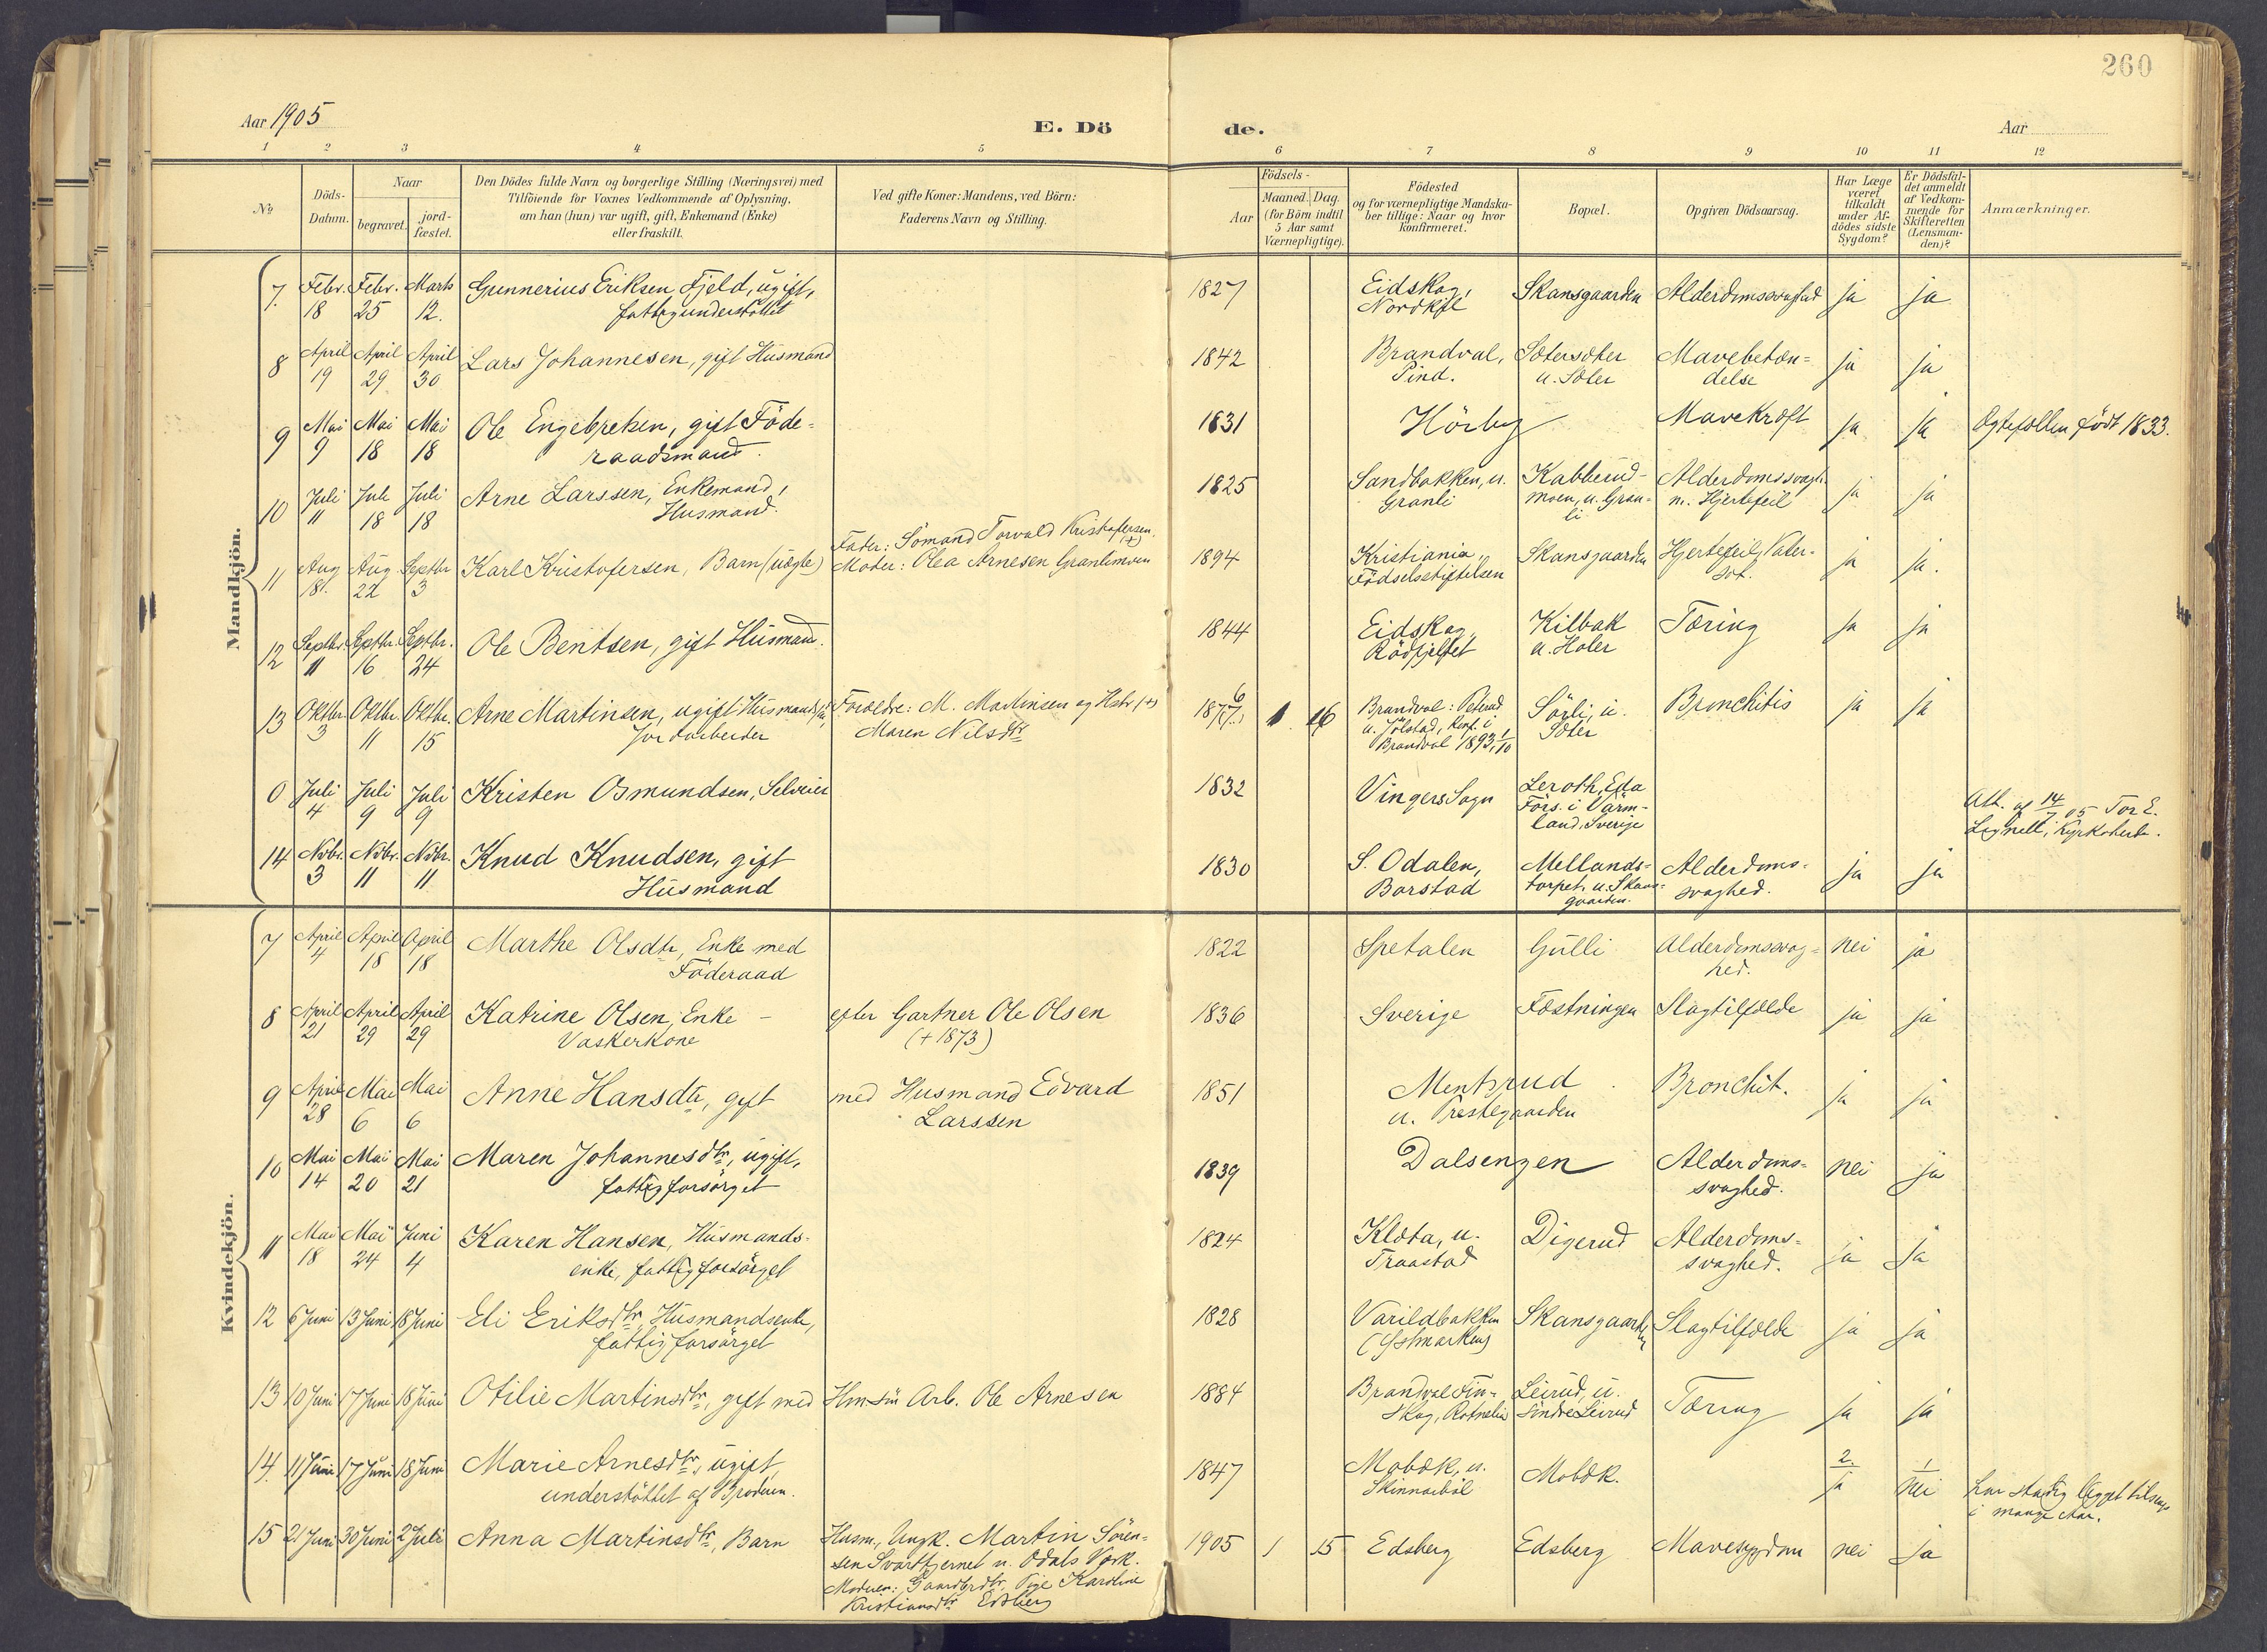 260
Aar 1905
E. Dö
de.
Aar
1 2 3 4 5 6 7 8 9 10 11 12
No
Döds-
Datum.
Naar
begravet.
jord-
fæstet.
Den Dödes fulde Navn og borgerlige Stilling (Næringsvei) med
Tilföiende for Voxnes Vedkommende af Oplysning,
om han (hun) var ugift, gift, Enkemand (Enke)
eller fraskilt.
Ved gifte Koner: Mandens, ved Börn:
Faderens Navn og Stilling.
Födsels-
Aar
Maaned. Dag.
(for Börn indtil
5 Aar samt
Værnepligtige).
Födested
og for værnepligtige Mandska-
ber tillige: Naar og hvor
konfirmeret.
Bopæl.
Opgiven Dödsaarsag.
Har Læge
været
tilkaldt
under Af-
dödes sidste
Sygdom?
Er Dödsfal-
det anmeldt
af Vedkom-
mende for
Skifteretten
(Lensman-
den)?
Anmærkninger.
Mandkjön.
7. Febr. 18 Febr. 25 Marts 12. Gunnerius Eriksen Fjeld, ugift,
fattigunderstöttet
1827 Eidskog, Skansgaarden Alderdomssvaghed ja ja
8 April 19 April 29 April 30 Lars Johannesen, gift Husmand
1842 Brandval, Sætersæter Mavebetæn- ja ja
Pind. u. Sæter delse
9 Mai 9 Mai 18 Mai 18 Ole Engebretsen, gift Föde-
raadsmand.
1831 Hörby Mavekræft ja ja Ægtefællen født 1833.
10 Juli 11 Juli 18 Juli 18 Arne Larssen, Enkemand,
Husmand.
1825 Sandbakken, u. Kabberud- Alderdomssvagh. ja ja
Granli moen, u. Gran- m. Hjertefeil
li
11 Aug 18. Aug 22 Septbr 3 Karl Kristofersen, Barn (uægte)
Fader: Sömand Torvald Kristofersen
Moder: Olea Arnesen Granlimoen
1894 Kristiania, Skansgaarden Hjertefeil, Vater- ja ja.
Födselsstiftelsen sot.
12 Septbr. 11 Septbr. 16 Septbr. 24 Ole Bentsen, gift Husmand.
1844 Eidskog, Kilbak Tæring ja ja
u. Holer
13 Oktbr. 3 Oktbr. 11 Oktbr. 15 Arne Martinsen, ugift
Jordarbeider
Forældre: M. Martinsen og Hstr
Maren Nilsdtr
1877 6 1 16 Brandval: Sörli, u. Bronchitis ja ja
konf. i Sæter
Brandval 1893, 1/10
0 Juli 4 Juli 9 Juli 9 Kristen Osmundsen, Selveier
1832 Vingers Sogn Leroth, Eda
Förs. i Värm-
land, Sverige
Att. af 14/7 05 Tor E.
Lignell, Kyrkoherde.
14 Nvbr. 3 Nvbr. 11 Nvbr. 11 Knud Knudsen, gift
Husmand
1830 S. Odalen, Mellands- Alderdoms- ja ja
Borstad torpet, u. Skans- svaghed.
gaarden.
Kvindekjön.
7 April 4 April 18 April 18 Marthe Olsdtr, Enke med
Föderaad
1822 Spetalen Gulli Alderdomssvag- nei ja
hed.
8 April 21 April 29 April 29 Katrine Olsen, Enke – efter Gartner Ole Olsen
Vaskerkone (+ 1873)
1836 Sverige Fæstningen Slagtilfælde ja ja
9 April 28 Mai 6 Mai 6 Anne Hansdtr, gift med Husmand Edvard
Larssen
1851 Mentsrud Bronchit. ja ja
u. Prestegaarden
10 Mai 14 Mai 20 Mai 21 Maren Johannesdtr, ugift,
fattigforsörget
1839 Dalsengen Alderdoms- nei ja
svaghed.
11 Mai 18 Mai 24 Juni 4 Karen Hansen, Husmands-
enke, fattigforsörget
1824 Klæta, u. Digerud Alderdoms- ja ja
Traastad svaghed.
12 6 Juni 13 Juni 18 Juni Eli Eriksdtr, Husmandsenke,
fattigforsörget
1828 Varildbakken Skansgaarden Slagtilfælde ja ja
(Östmarken)
13 10 Juni 17 Juni 18 Juni Otilie Martinsdtr, gift med Hmsön Arb. Ole Arnesen
1884 Brandval Fin- Leirud, u. Tæring ja ja
skog, söndre Leirud
14. 11 Juni 17 Juni 18 Juni Marie Arnesdtr, ugift,
understöttet af Broderen.
1847 Mobæk, u. Mobæk. 2. ja 1 nei har stadig ligget tilsengs
Skinnarböl i mange Aar.
15 21 Juni 30 Juni 2 Juli Anna Martinsdtr, Barn
Husm., Ungk. Martin Sören-
sen Svarttjernet u. Odals Værk.
Moderen: Gaardbrdtr, Pige Karoline
Kristiansdtr Edsberg
1905 1 15 Edsberg Edsberg Mavesygdom nei ja